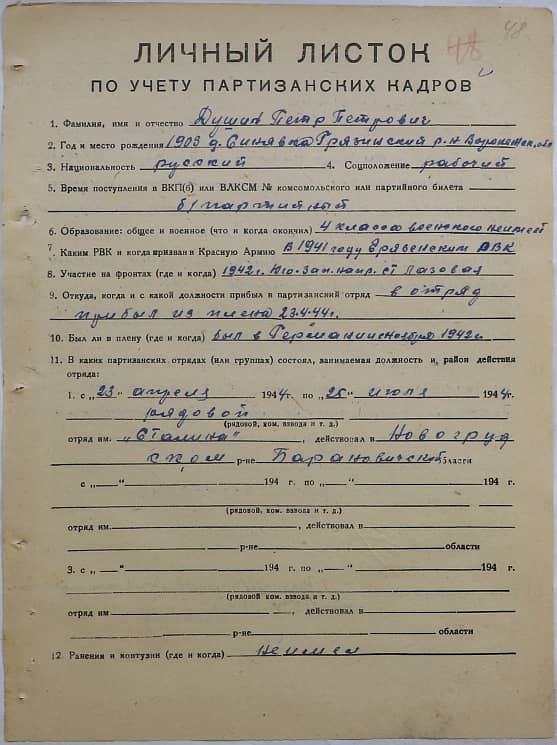 48.
48
ЛИЧНЫЙ ЛИСТОК
ПО УЧЕТУ ПАРТИЗАНСКИХ КАДРОВ
1. Фамилия, имя и отчество Душин Петр Петрович
2. Год и место рождения 1903 д. Синявка Грязинский р-н Воронежск. обл
3. Национальность русский 4. Соцположение рабочий
5. Время поступления в ВКП(б) или ВЛКСМ № комсомольского или партийного билета
б/партийный
6. Образование: общее и военное (что и когда окончил) 4 класса военного не имеет
7. Каким РВК и когда призван в Красную Армию В 1941 году РВК
8. Участие на фронтах (где и когда) 1942 г. Юго-Зап. напр. ст Лазовая
9. Откуда, когда и с какой должности прибыл в партизанский отряд в отряд
прибыл из плена 23.4.44г.
10. Был ли в плену (где и когда) был в Германии с ноября 1942 г
11. В каких партизанских отрядах (или группах) состоял, занимаемая должность и район действия
отряда:
1. с „23" апреля 1944 г. по „25" июля 1944 г.
рядовой
(рядовой, ком. взвода и т. д.)
отряд им. „Сталина", действовал в Новогруд
ском р-не Барановичской области
с „ " 194 г. по „ " 194 г.
(рядовой, ком. взвода и т. д.)
отряд им. , действовал в
р-не области
3. с „ " 194 г. по „ " 194 г.
(рядовой ком. взвода и т. д.)
отряд им , действовал в
р-не области
12. Ранения и контузии (где и когда) не имел